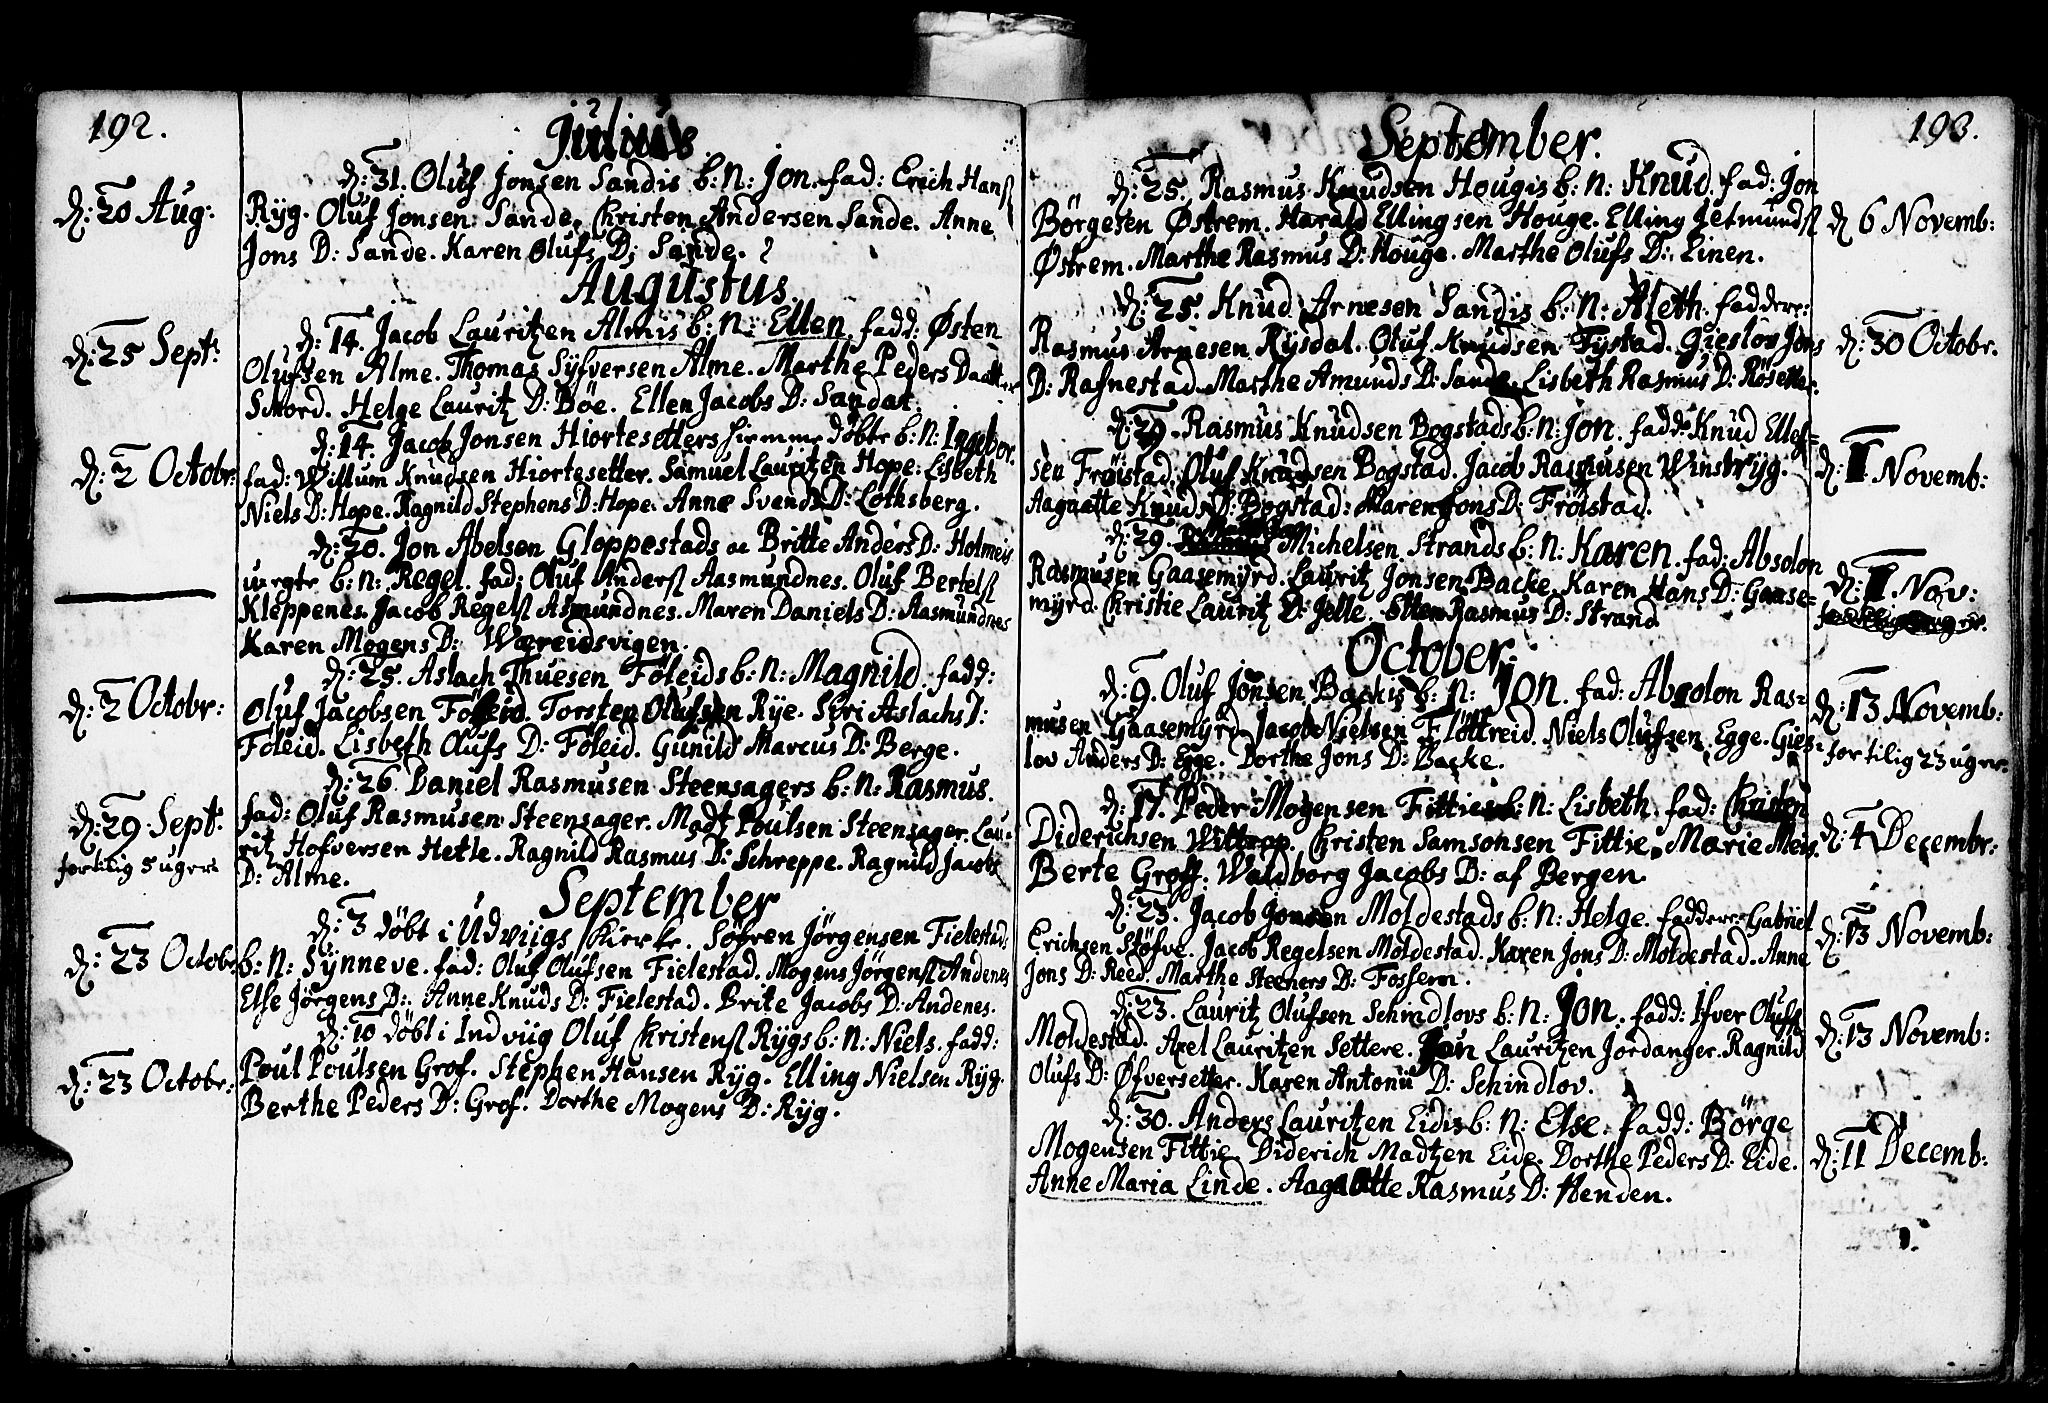 192.
Julius
d: 31. Oluf Jonsen Sandis b: N: Jon. fad: Erich Hans
Ryg. Oluf Jonsen Sande. Christen Andersen Sande. Anne
Jons D: Sande. Karen Olufs D: Sande.
d: 20 Aug:
Augustus.
d: 14. Jacob Lauritzen Almis b: N: Ellen. fadd: Østen
Olufsen Alme. Thomas Syfversen Alme. Marthe Peders Datter
Smord. Helge Lauritz D: Böe. Ellen Jacobs D: Sandat.
d: 25 Sept:
d: 14. Jacob Jonsen Hiortesetters hiemme döbte b: N: Ingebor.
fad: Willum Knudsen Hiortesetter. Samuel Lauritzen Hope. Lisbeth
Niels D: Hope. Ragnild Stephens D: Hope. Anne Svends D: Lothsberg.
d: 2 Octobr:
d: 20. Jon Abelsen Gloppestads oc Britte Anders D: Holmeis
uegte b: N: Regel. fad: Oluf Anders Aasmundnes. Oluf Bertels
Kleppenes. Jacob Regels Asmundnes. Maren Daniels D: Aasmundnes
Karen Mogens D: Wæreidsvigen.
d: 25. Aslach Thuesen Föleids b: N: Magnild. fadd:
Oluf Jacobsen Föleid. Torsten Olufsen Rye. Siri Aslachs D:
Föleid. Lisbeth Olufs D: Föleid. Gunild Marcus D: Berge.
d: 2 Octobr:
d: 26. Daniel Rasmusen Steensagers b: N: Rasmus.
fad: Oluf Rasmusen Steensager. Madz Poulsen Steensager. Lau-
ritz Hofversen Hetle. Ragnild Rasmus D: Schreppe. Ragnild Jacobs
D: Alme.
d: 29. Sept:
fortilig 5 uger
September
d: 3 döbt i Udviigs Kierke. Söfren Jörgensen Fielestads
b: N: Synneve. fad: Oluf Olufsen Fielestad. Mogens Jörgens Andenes
Else Jörgens D: Anne Knuds D: Fielestad. Brite Jacobs D: Andenes.
d: 23 Octobr
d: 10 döbt i Indviig Oluf Christens Rygs b: N: Niels. fadd:
Poul Poulsen Grof. Stephen Hansen Ryg. Elling Nielsen Ryg.
Berthe Peders D: Grof. Dorthe Mogens D: Ryg.
d: 23 Octobr:
193.
September.
d: 25. Rasmus Knudsen Hougis b: N: Knud. fad: Jon
Börgesen Østrem. Harald Ellingsen Houge. Elling Jetmunds
Østrem. Marthe Rasmus D: Houge. Marthe Olufs D: Linen.
d 6 Novemb:
d: 25. Knud Arnesen Sandis b: N: Aleth. faddere:
Rasmus Arnesen Rysdal. Oluf Knudsen Tystad. Gieslov Jons
D: Rafnestad. Marthe Amunds D: Sande. Lisbeth Rasmus D: Rösetter.
d: 30 Octobr.
d: 29. Rasmus Knudsen Bogstads b: N: Jon. fadd: Knud Ellef-
sen Fröistad. Oluf Knudsen Bogstad. Jacob Rasmusen Winstryg.
Aagaatte Knuds D: Bogstad. Maren Jons D: Fröistad.
d: 1 Novemb:
d: 29. Michelsen Strands b: N: Karen. fad: Absolon
Rasmusen Gaasemyrd. Lauritz Jonsen Backe. Karen Hans D: Gaase-
myrd. Christie Lauritz D: Jelle. Ellen Rasmus D: Strand
d: 1. Nov:
October.
d: 9. Oluf Jonsen Backis b: N: Jon. fad: Absolon Ras-
musen Gaasemyrd. Jacob Nielsen Flöttreid. Niels Olufsen Egge. Gies-
lov Anders D: Egge. Dorthe Jons D: Backe.
d: 13 Novemb:
for tilig 23 uger.
d: 17. Peder Mogensen Fitties b: N: Lisbeth. fad: Christen
Diderichsen Wittrop. Christen Samsonsen Fittie. Marie Meis.
Berte Groff. Waldborg Jacobs D: af Bergen
d: 4 Decembr:
d: 23. Jacob Jonsen Moldestads b: N: Helge. faddere Gabriel
Erichsen Støfve. Jacob Regelsen Moldestad. Karen Jons D: Moldestad. Anne
Jons D: Reed. Marthe Steeners D: Fossem.
d: 13 Novemb:
d: 23. Lauritz Olufsen Schindlovs b: N: Jon. fadd: Ifver Olufs
Moldestad. Axel Lauritzen Settere. Jon Lauritzen Jordanger. Ragnild
Olufs D: Øfversetter. Karen Antonii D: Schindlov.
d: 13 Novemb:
d: 30. Anders Lauritzen Eidis b: N: Else. fadd: Börge
Mogensen Fittie. Diderich Madtzen Eide. Dorthe Peders D: Eide.
Anne Maria Linde. Aagaatte Rasmus D: Henden.
d: 11 Decemb: